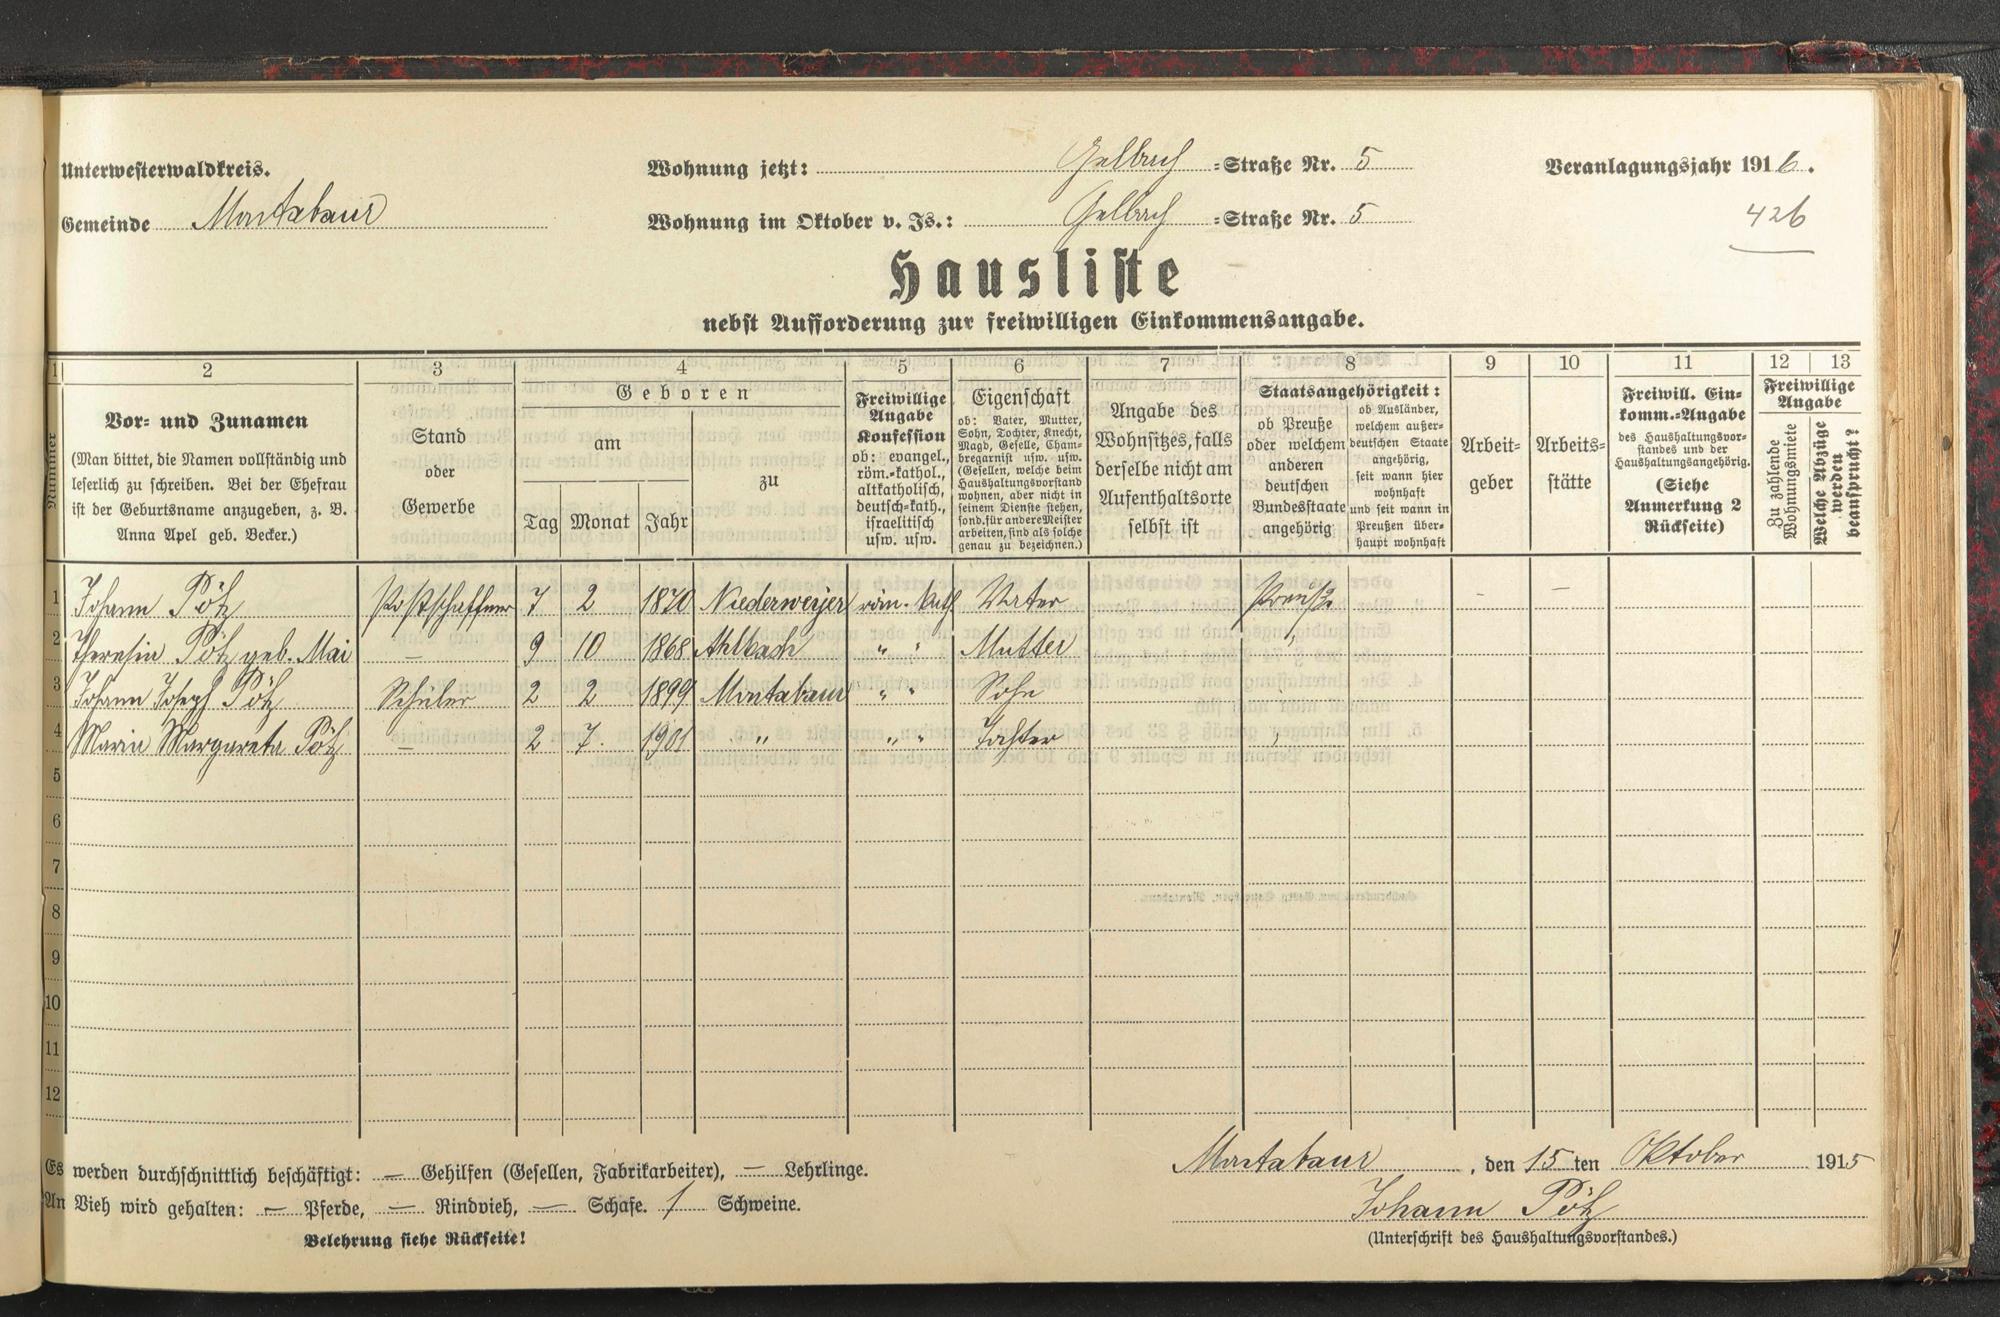 Unterwesterwaldkreis.
Gemeinde Montabaur
Wohnung jetzt: Gelbach =Straße Nr. 5
Wohnung im Oktober v. Js.: Gelbach =Straße Nr. 5
Veranlagungsjahr 1916.
426
Hausliste
nebst Aufforderung zur freiwilligen Einkommensangabe.
1 2 3 4 5 6 7 8 9 10 11 12 13
Nummer
Vor- und Zunamen
(Man bittet, die Namen vollständig und
leserlich zu schreiben. Bei der Ehefrau
ist der Geburtsname anzugeben, z. B.
Anna Apel geb. Becker.)
Stand
oder
Gewerbe
Geboren
am
Tag Monat Jahr
zu
Freiwillige
Angabe
Konfession
ob: evangel.,
röm.-kathol.,
altkatholisch,
deutsch-kath.,
israelitisch
usw. usw.
Eigenschaft
ob: Vater, Mutter,
Sohn, Tochter, Knecht,
Magd, Geselle, Cham-
bregarnist usw. usw.
(Gesellen, welche beim
Haushaltungsvorstand
wohnen, aber nicht in
seinem Dienste stehen,
sond. für andere Meister
arbeiten, sind als solche
genau zu bezeichnen.)
Angabe des
Wohnsitzes, falls
derselbe nicht am
Aufenthaltsorte
selbst ist
Staatsangehörigkeit:
ob Preuße
oder welchem
anderen
deutschen
Bundesstaate
angehörig
ob Ausländer,
welchem außer-
deutschen Staate
angehörig,
seit wann hier
wohnhaft
und seit wann in
Preußen über-
haupt wohnhaft
Arbeit-
geber
Arbeits-
stätte
Freiwill. Ein-
komm.-Angabe
des Haushaltungsvor-
standes und der
Haushaltungsangehörig.
(Siehe
Anmerkung 2
Rückseite)
Freiwillige
Angabe
Zu zahlende
Wohnungsmiete
Welche Abzüge
werden
beansprucht?
1 Johann Pötz Postschaffner 7 2 1870 Niederweyer röm. kath Vater Preuße – –
2 Theresia Pötz geb. Mai – 9 10 1868 Ahlbach " " Mutter "
3 Johann Joseph Pötz Schüler 2 2 1899 Montabaur " " Sohn "
4 Maria Margareta Pötz – 2 7. 1901 " " " Tochter "
5
6
7
8
9
10
11
12
Es werden durchschnittlich beschäftigt: – Gehilfen (Gesellen, Fabrikarbeiter), – Lehrlinge.
An Vieh wird gehalten: – Pferde, – Rindvieh, – Schafe. 1 Schweine.
Belehrung siehe Rückseite!
Montabaur, den 15 ten Oktober 1915
Johann Pötz
(Unterschrift des Haushaltungsvorstandes.)